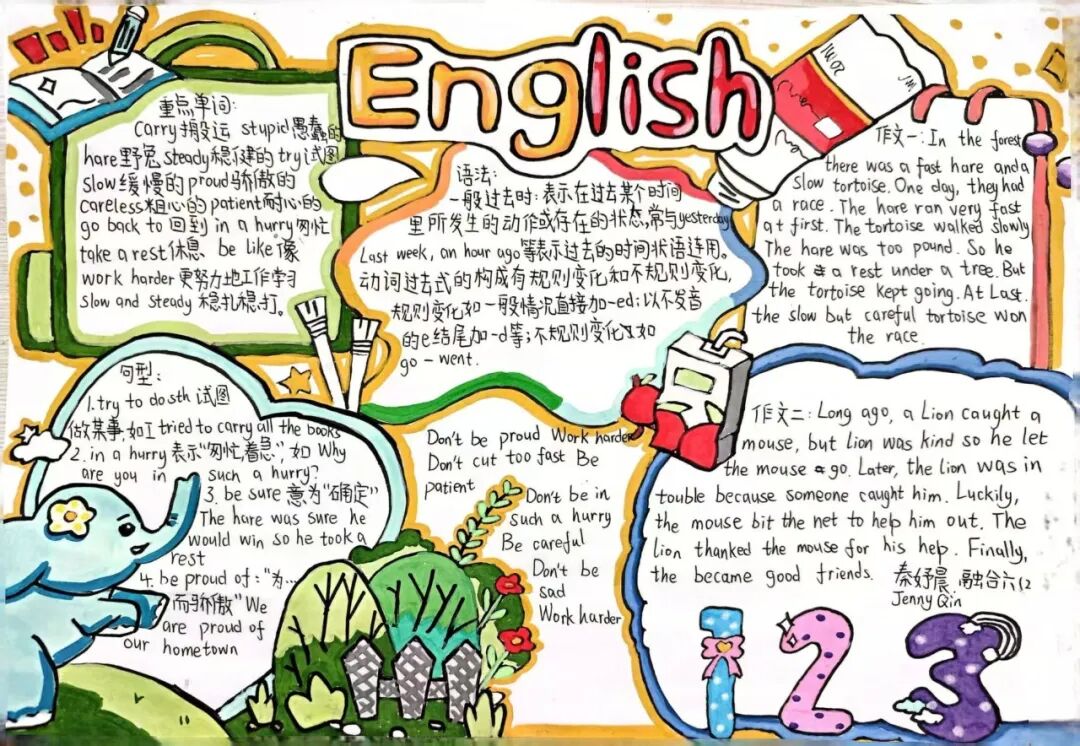 English
重点单词:
Carry搬运 stupid愚蠢的
hare野兔 steady稳健的 try试图
slow缓慢的 proud骄傲的
careless粗心的 patient耐心的
go back to 回到 in a hurry匆忙
take a rest休息 be like像
work harder 更努力地工作学习
slow and steady 稳扎稳打。
语法:
一般过去时:表示在过去某个时间
里所发生的动作或存在的状态,常与yesterday
Last week, an hour ago等表示过去的时间状语连用。
动词过去式的构成有规则变化和不规则变化,
规则变化如一般情况直接加-ed;以不发音
的e结尾加-d等;不规则变化如
go-went.
作文一: In the forest
there was a fast hare and a
slow tortoise. One day, they had
a race. The hare ran very fast
at first. The tortoise walked slowly
The hare was too pound. So he
took a rest under a tree. But
the tortoise kept going. At Last.
the slow but careful tortoise won
the race.
句型:
1. try to do sth 试图
做某事,如I tried to carry all the books
2. in a hurry 表示“匆忙,着急”,如 Why
are you in such a hurry?
3. be sure 意为“确定”
The hare was sure he
would win so he took a
rest
4. be proud of:“为...
而骄傲”We
are proud of
our hometown
Don't be proud Work harder
Don't cut too fast Be
patient
Don't be in
such a hurry
Be careful
Don't be
sad
Work harder
作文二: Long ago, a Lion caught a
mouse, but lion was kind so he let
the mouse go. Later, the lion was in
touble because someone caught him. Luckily,
the mouse bit the net to help him out. The
lion thanked the mouse for his help. Finally,
the became good friends. 秦妤晨 融合六(2
Jenny Qin
1 2 3